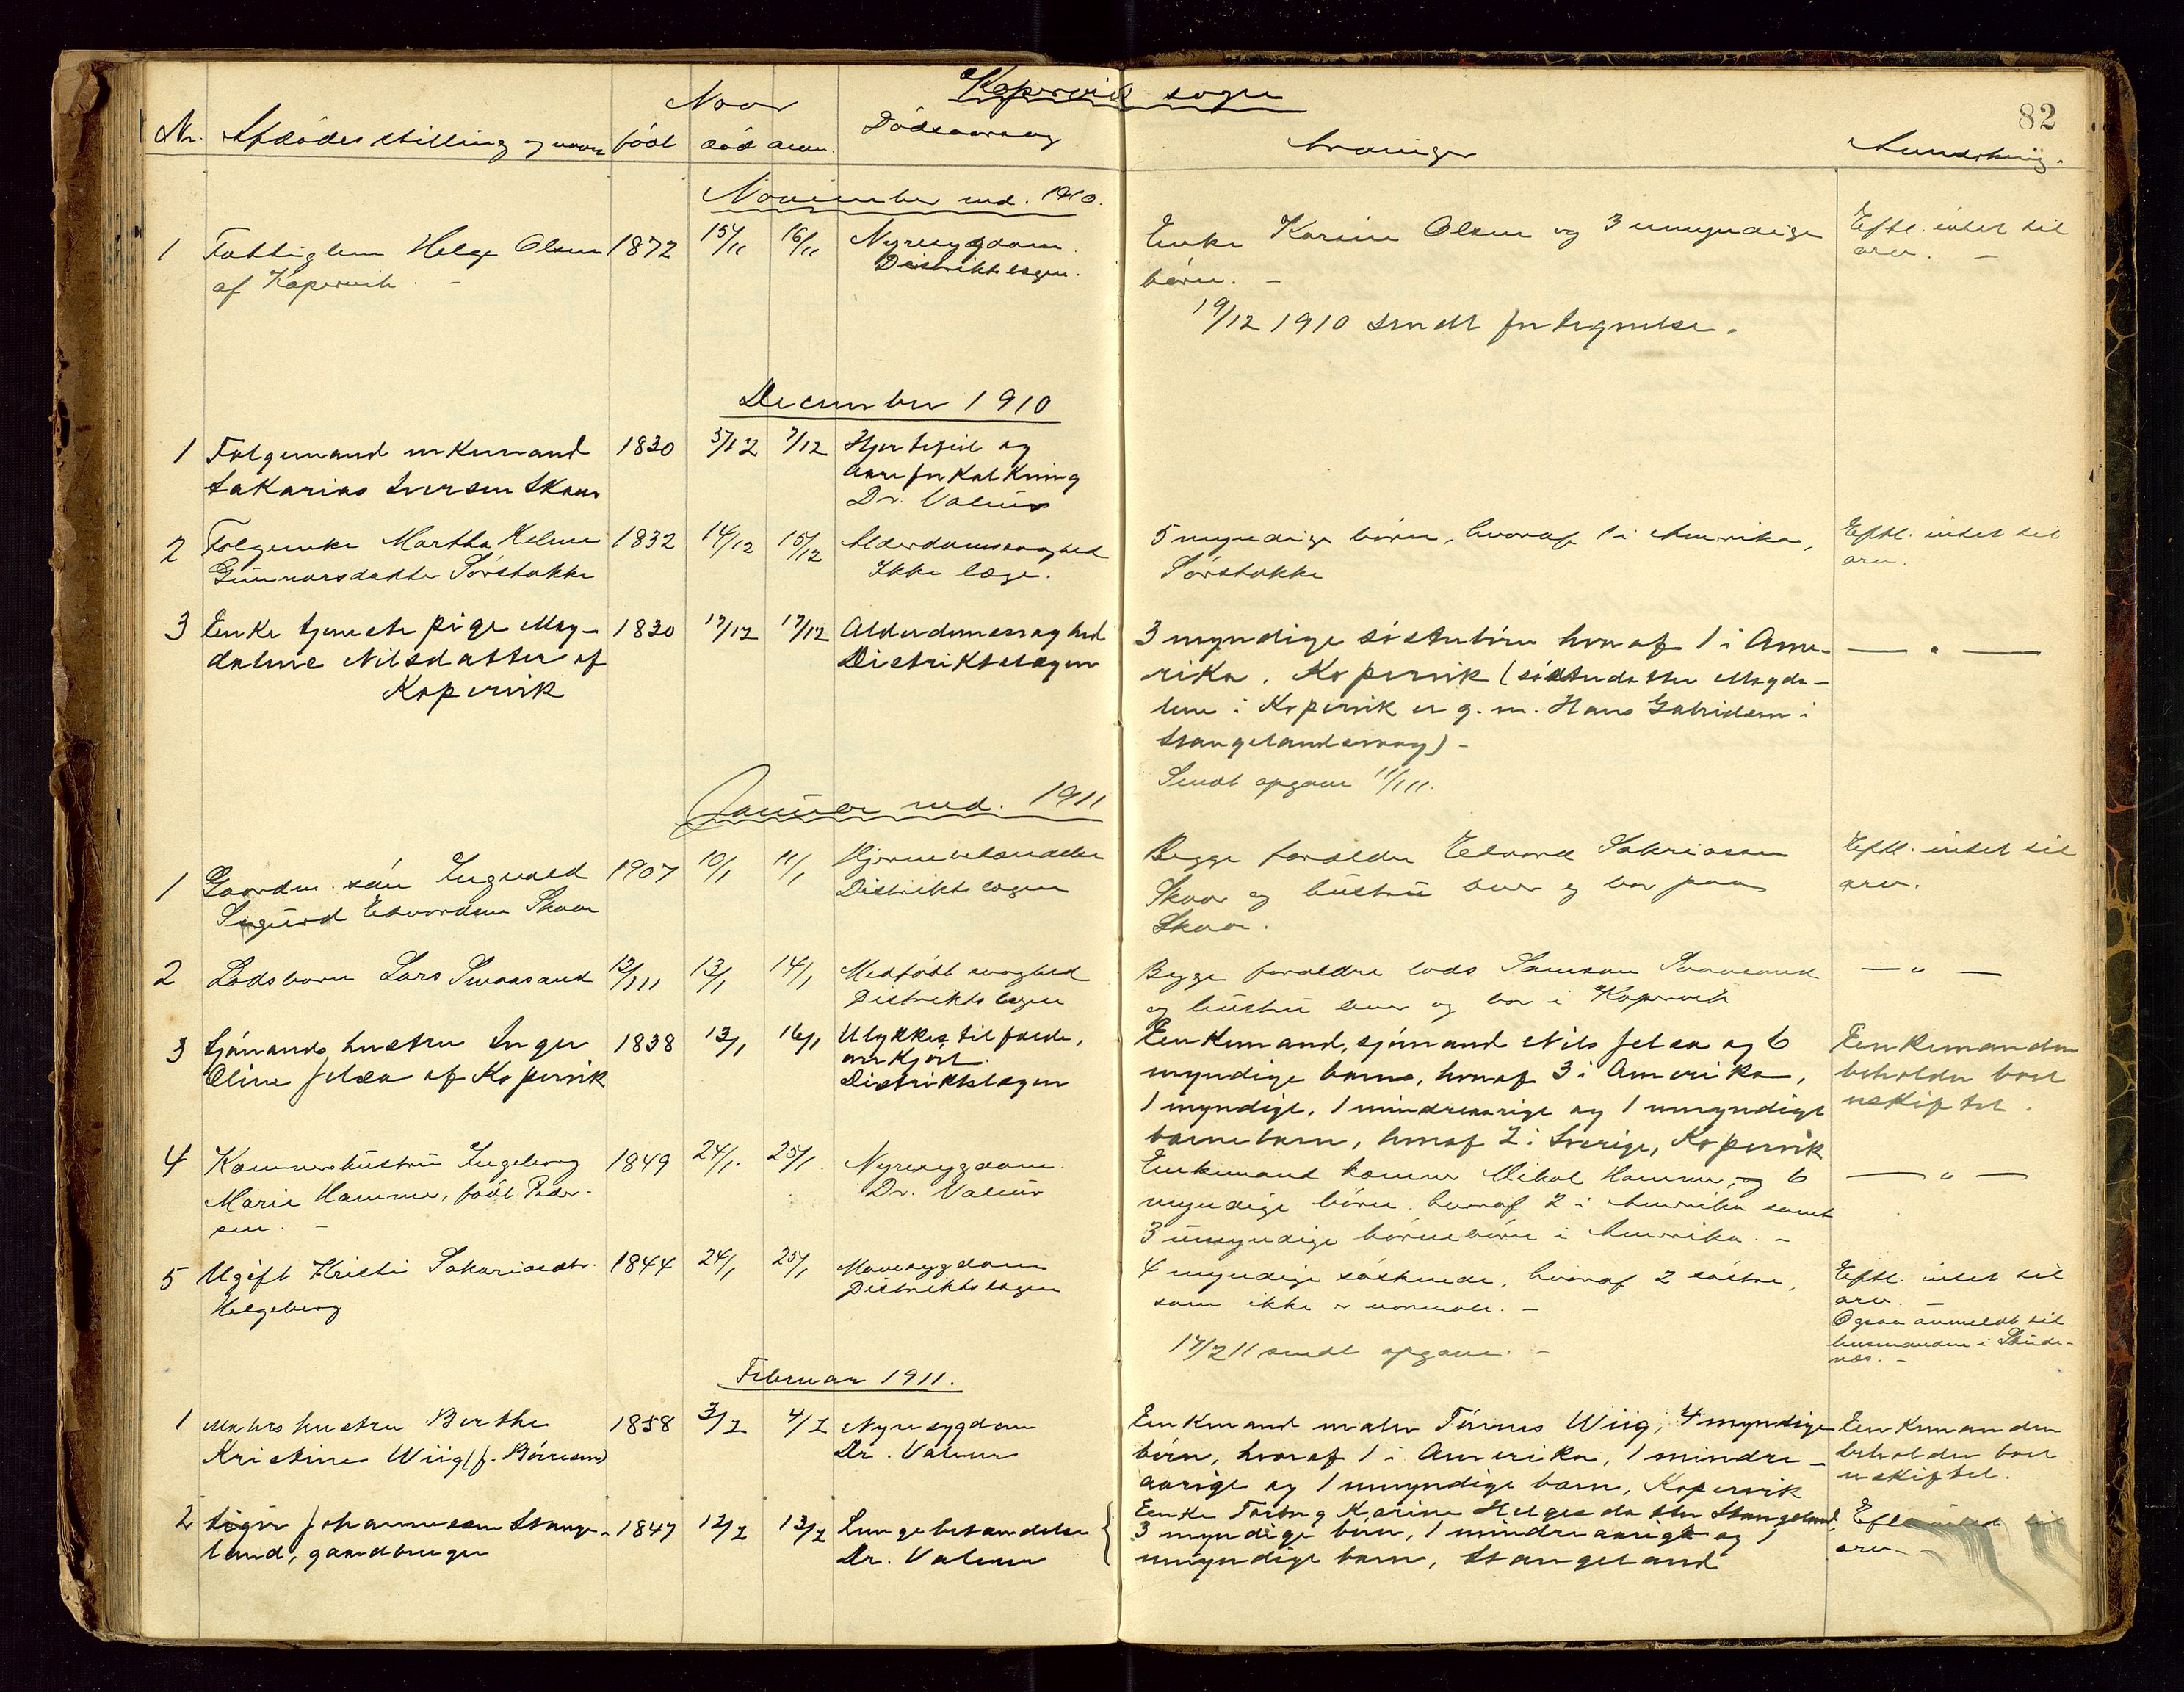 Kopervik sogn
82
Naar
Nr. Afdødes stilling og navn født død anm. Dødsaarsag Arvinger Anmerkning.
November md. 1910.
1 Fattiglem Helge Olsen 1872 15/11 16/11 Nyresygdom Enke Karine Olsen og 3 umyndige Eftl. intet til
af Kopervik. - Distriktslægen. børn. - arv. -
19/12 1910 sendt fortegnelse.
December 1910
1 Folgemand enkemand 1830 5/12 7/12 Hjertefeil og
Sakarias Iversen Skaar aareforkalkning
Dr. Valeur
2 Folgeenke Martha Helene 1832 14/12 15/12 Alderdomssvaghed 5 myndige børn, hvoraf 1 i Amerika, Eftl. intet til
Gunnarsdatter Sørstokke Ikke læge. Sørstokke arv.
3 Enke tjenestepige Mag- 1830 17/12 17/12 Alderdomssvaghed 3 myndige søsterbørn hvoraf 1 i Ame- — " —
dalene Nilsdatter af Distriktslægen rika. Kopervik (søsterdatter Magda-
Kopervik lene i Kopervik er g. m. Hans Gabrielsen i
Stangelandsvaag) -
Sendt opgave 11/1 11.
Januar md. 1911
1 Gaardm. søn Ingvald 1907 10/1 11/1 Hjernebetændelse Begge forældre Edvard Sakriasen Eftl. intet til
Sigurd Edvardsen Skaar Distriktslægen Skaar og hustru lever og bor paa arv.
Skaar.
2 Lodsbarn Lars Svaasand 12/1 11 13/1 14/1 Medfødt svaghed Begge forældre lods Samson Svaasand — " —
Distriktslægen og hustru lever og bor i Kopervik
3 Sjømands hustru Inger 1838 13/1 16/1 Ulykkestilfælde, Enkemand, sjømand Nils Jelsa og 6 Enkemanden
Oline Jelsa af Kopervik omkjørt. myndige børn, hvoraf 3 i Amerika, beholder boet
Distriktslægen 1 myndige, 1 mindreaarige og 1 umyndige uskiftet.
barnebarn, hvoraf 2 i Sverige, Kopervik
4 Kæmnershustru Ingeborg 1849 24/1. 25/1. Nyresygdom. Enkemand kæmner Mikal Hamme, og 6 — " —
Marie Hamme, født Peder- Dr. Valeur myndige børn hvoraf 2 i Amerika samt
sen. - 3 umyndige børnebørn i Amerika. -
5 Ugift Kristi Sakariasdtr. 1844 24/1 25/1 Mavesygdom 4 myndige søskende, hvoraf 2 søstre, Eftl. intet til
Helgeberg Distriktslægen som ikke er normale. - arv. -
Ogsaa anmeldt til
17/2 11 sendt opgave. - lensmanden i Skude-
næs. -
Februar 1911.
1 Malers hustru Berthe 1858 3/2 4/2 Nyresygdom Enkemand maler Tønnes Wiig, 4 myndige Enkemanden
Kristine Wiig (f. Børresen) Dr. Valeur børn, hvoraf 1 i Amerika, 1 mindre- beholder boet
aarige og 1 umyndige barn, Kopervik uskiftet.
2 Johannessen Stange- 1847 12/2 13/2 Lungebetændelse Enke Torborg Karine Helgesdatter Stangeland, Eftl. intet til
land, gaardbruger Dr. Valeur 3 myndige børn, 1 mindreaarigt og 1 arv
umyndige barn, Stangeland